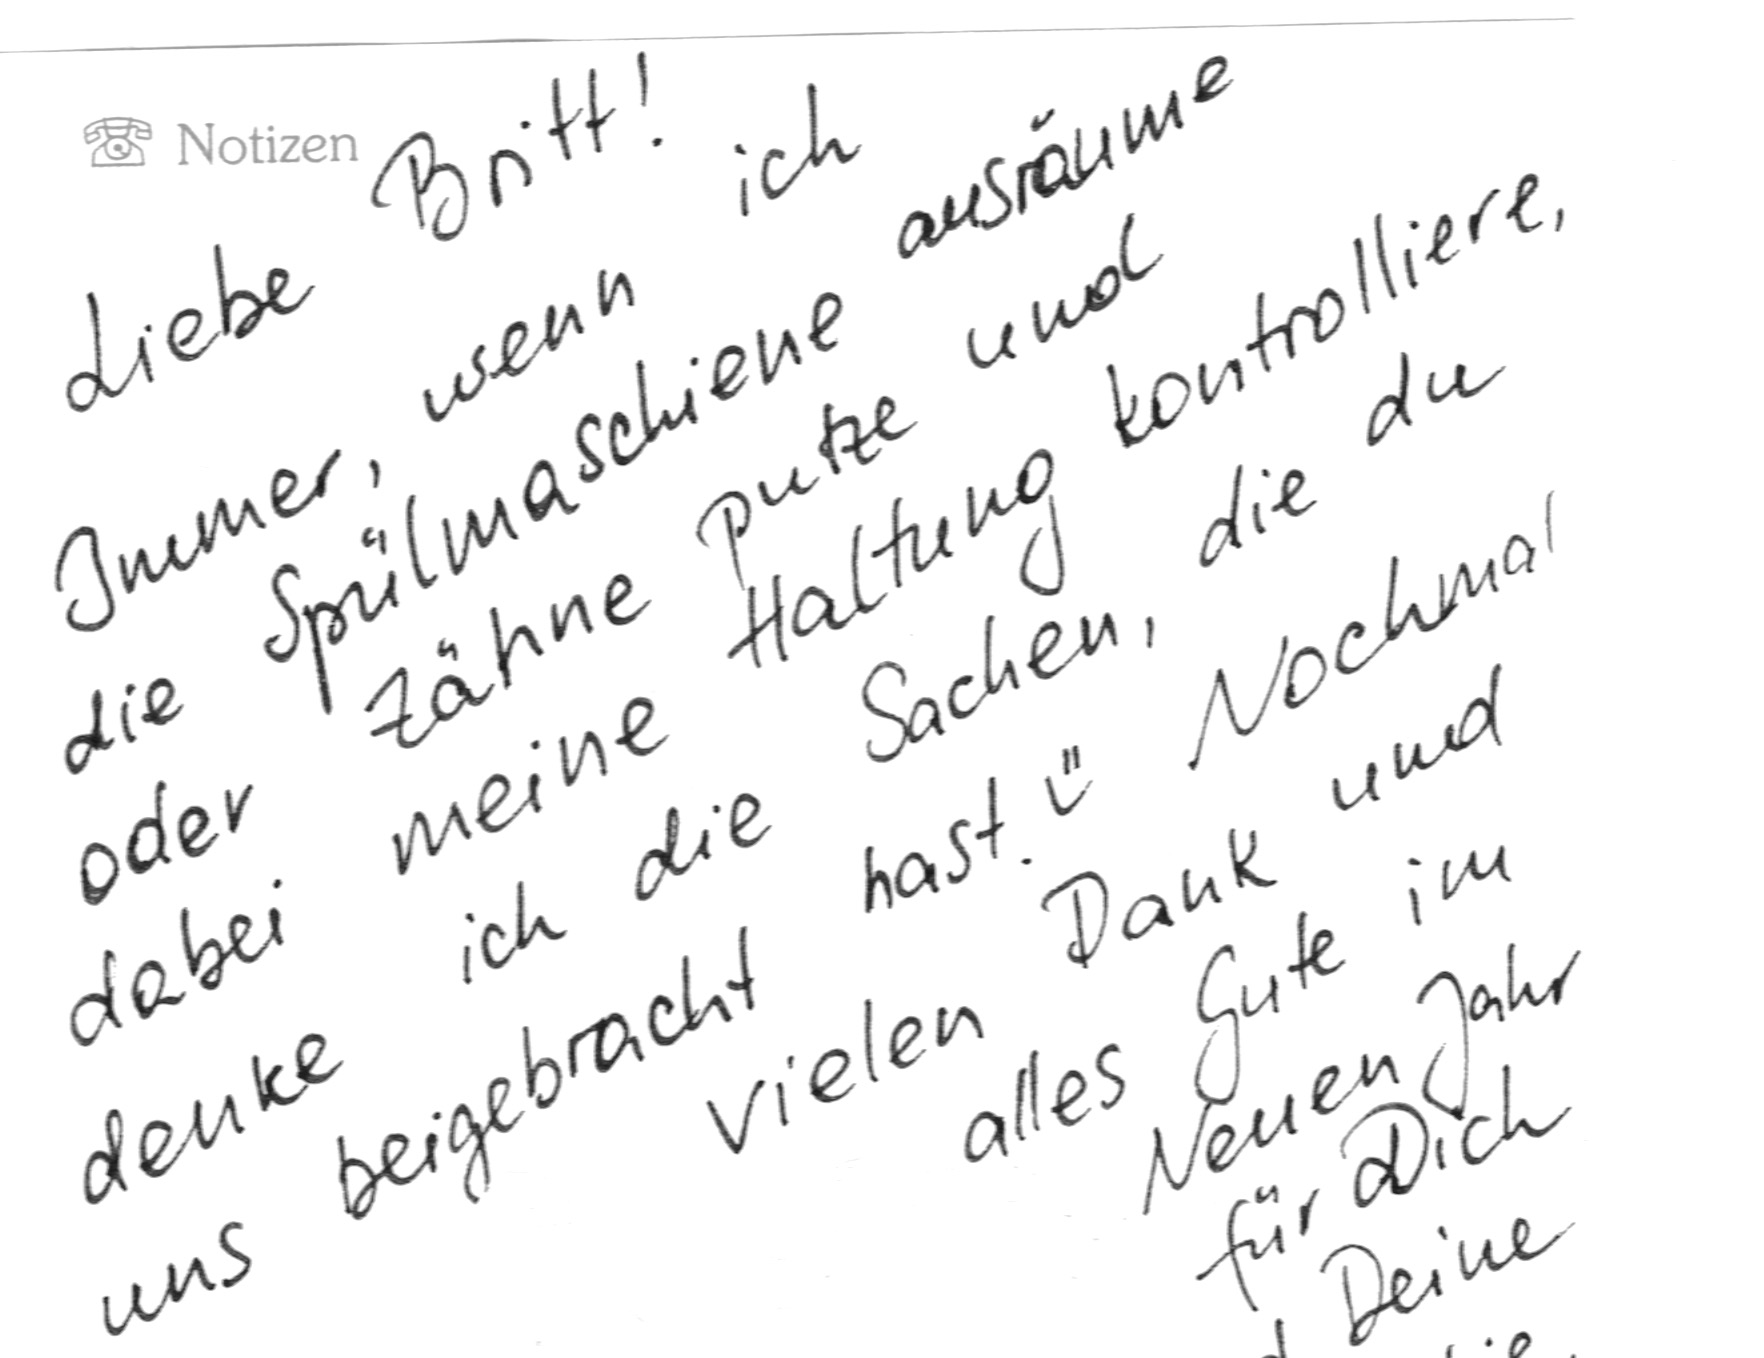 Notizen
Liebe Britt!
Immer, wenn ich
die Spülmaschiene ausräume
oder Zähne putze und
dabei meine Haltung kontrolliere,
denke ich die Sachen, die du
uns beigebracht hast. Nochmal
vielen Dank und
alles Gute im
Neuen Jahr
für Dich
Deine